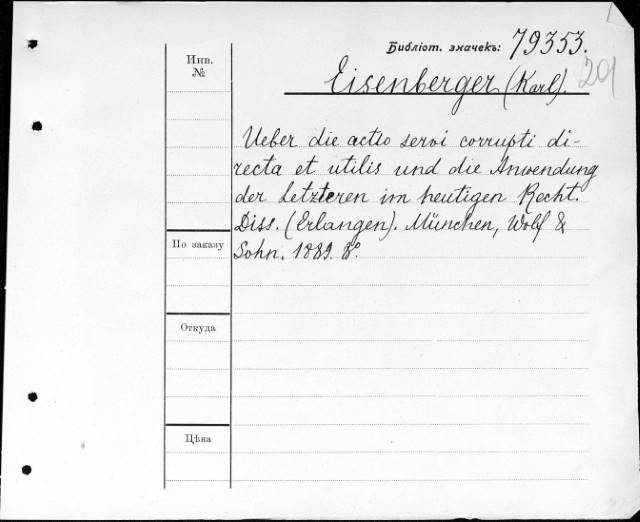 Библіот. значекъ: 79353.
Инв. №
Eisenberger (Karl). 201
Ueber die actio servi corrupti di-
recta et utilis und die Anwendung
der letzteren im heutigen Recht.
Diss. (Erlangen). München, Wolf &
Sohn. 1889. 8°.
По заказу
Откуда
Цѣна